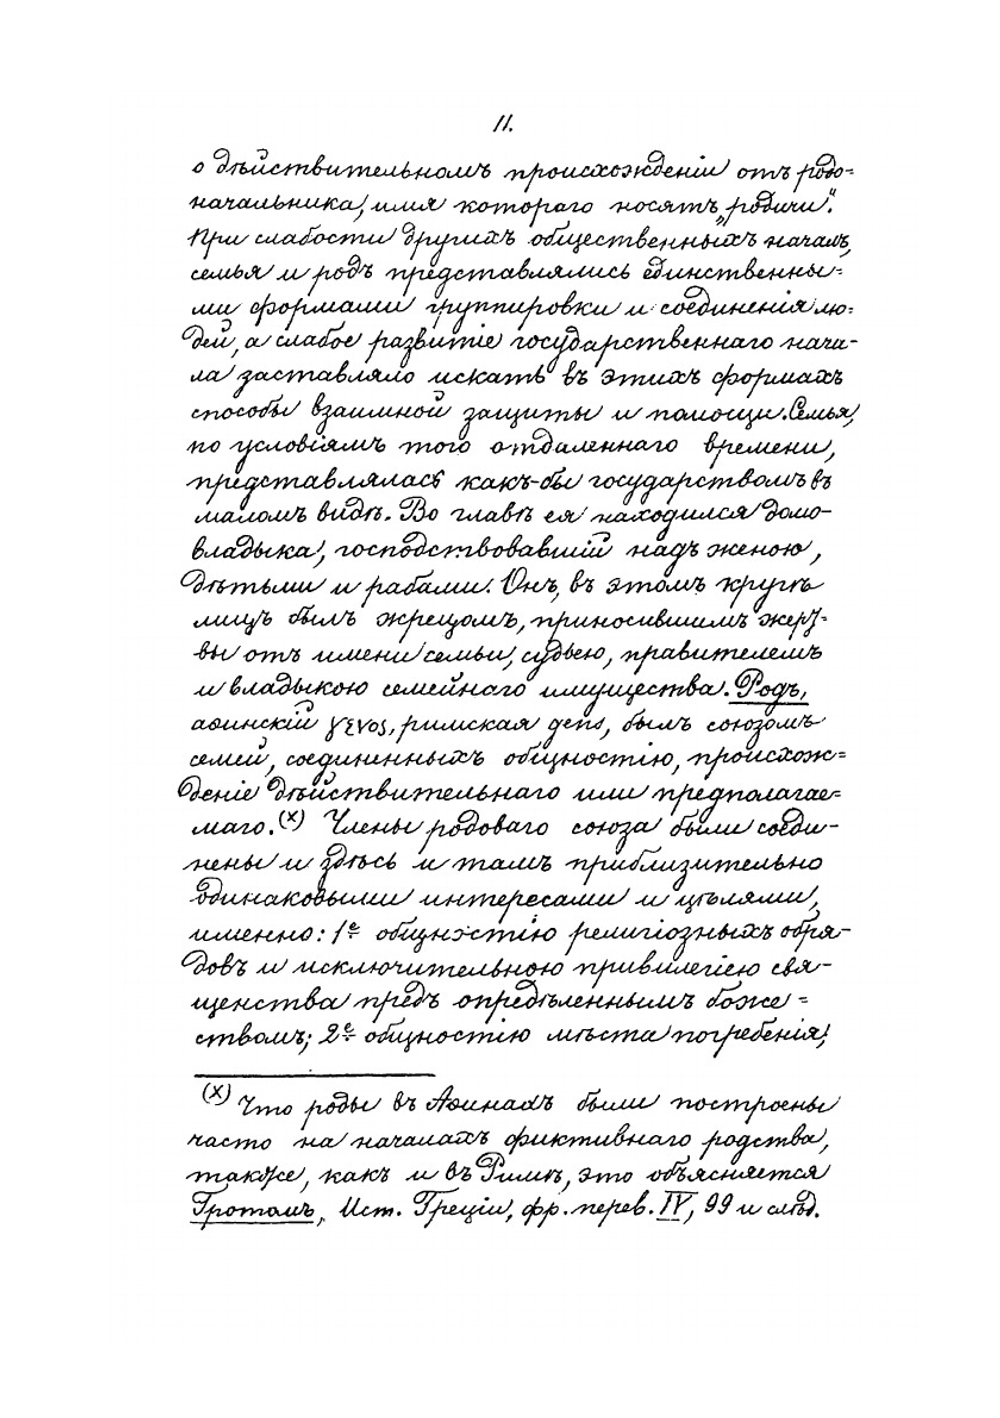 11.
о дѣйствительномъ происхожденіи отъ родо=
начальника, имя котораго носятъ „родичи".
При слабости другихъ общественныхъ началъ,
семья и родъ представлялись единственны=
ми формами группировки и соединенія лю=
дей, а слабое развитіе государственнаго нача-
ла заставляло искать въ этихъ формахъ
способы взаимной защиты и помощи. Семья,
по условіямъ того отдаленнаго времени,
представлялась какъ-бы государствомъ въ
маломъ видѣ. Во главѣ ея находился домо-
владыка, господствовавшій надъ женою,
дѣтьми и рабами. Онъ, въ этомъ кругѣ
лицъ былъ жрецомъ, приносившимъ жерт-
вы отъ имени семьи, судьею, правителемъ
и владыкою семейнаго имущества. Родъ,
аѳинскій γενος, римская gens, былъ союзомъ
семей, соединенныхъ общностію, происхож=
деніе дѣйствительнаго или предполагае=
маго.(х) Члены родоваго союза были соеди-
нены и здѣсь и тамъ приблизительно
одинаковыми интересами и цѣлями,
именно: 1е общностію религіозныхъ обря-
довъ и исключительною привилегіею свя-
щенства предъ опредѣленнымъ боже=
ствомъ; 2е общностію мѣста погребенія;
(х) Что роды въ Аѳинахъ были построены
часто на началахъ фиктивнаго родства,
также, какъ и въ Римѣ, это объясняется
Гротомъ, Ист. Греціи, фр. перев. IV, 99 и слѣд.